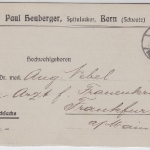 Paul Heuberger, Spitalacker, Bern (Schweiz)
Hochwohlgeboren
Dr. med. Aug. Nebel
Arzt f. Frauenkr.
Frankfurt
a/Main